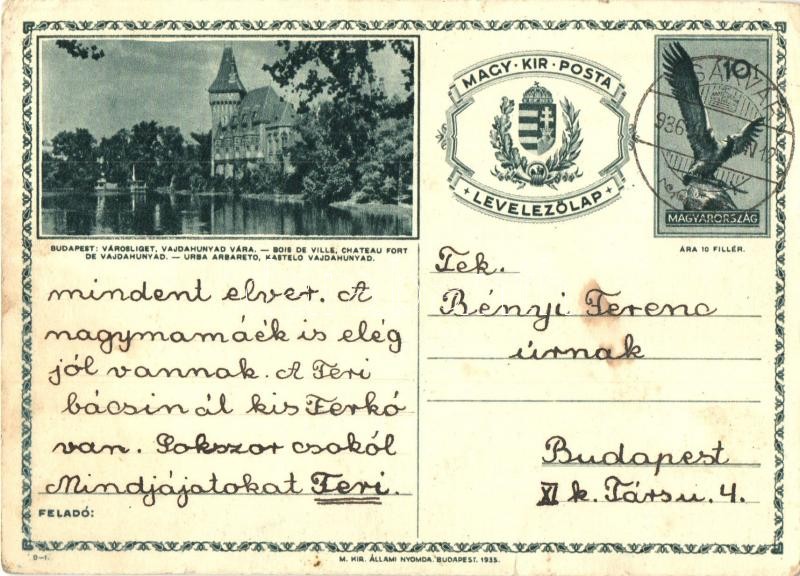 BUDAPEST: VÁROSLIGET, VAJDAHUNYAD VÁRA. — BOIS DE VILLE, CHATEAU FORT
DE VAJDAHUNYAD. — URBA ARBARETO, KASTELO VAJDAHUNYAD.
mindent elver. A
nagymamáék is elég
jól vannak. A Feri
bácsinál kis Ferkó
van. Sokszor csokól
Mindjájatokat Feri.
FELADÓ:
D-1.
MAGY·KIR·POSTA
LEVELEZŐLAP
10
MAGYARORSZÁG
ÁRA 10 FILLÉR.
SÁRVÁR
936
Tek.
Bényi Ferenc
úrnak
Budapest
XI k. Társu. 4.
M. KIR. ÁLLAMI NYOMDA, BUDAPEST. 1935.